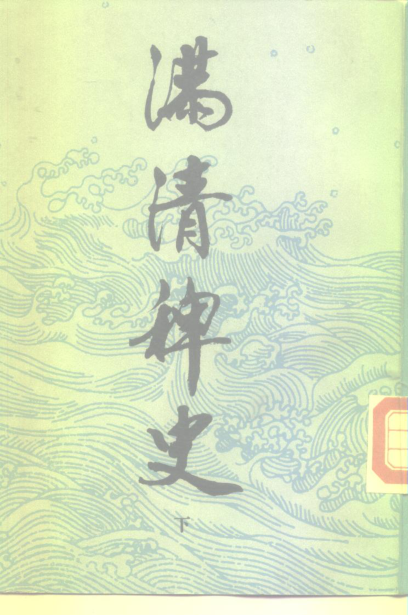 满清稗史
下